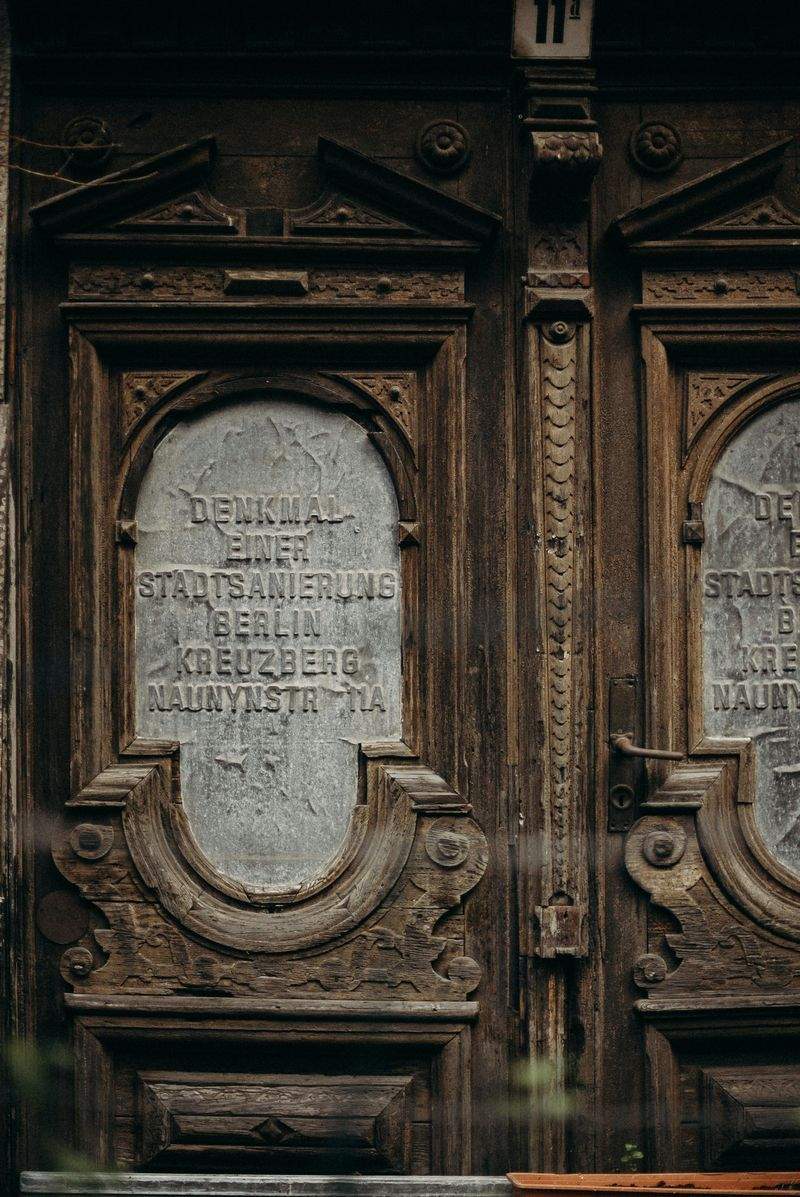 11a
DENKMAL
EINER
STADTSANIERUNG
BERLIN
KREUZBERG
NAUNYNSTR 11A
DE
E
STADTS
B
KRE
NAUNY